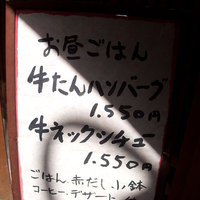 お昼ごはん
牛たんハンバーグ
1.550円
牛ネックシチュー
1.550円
ごはん.赤だし.小鉢
コーヒー.デザート